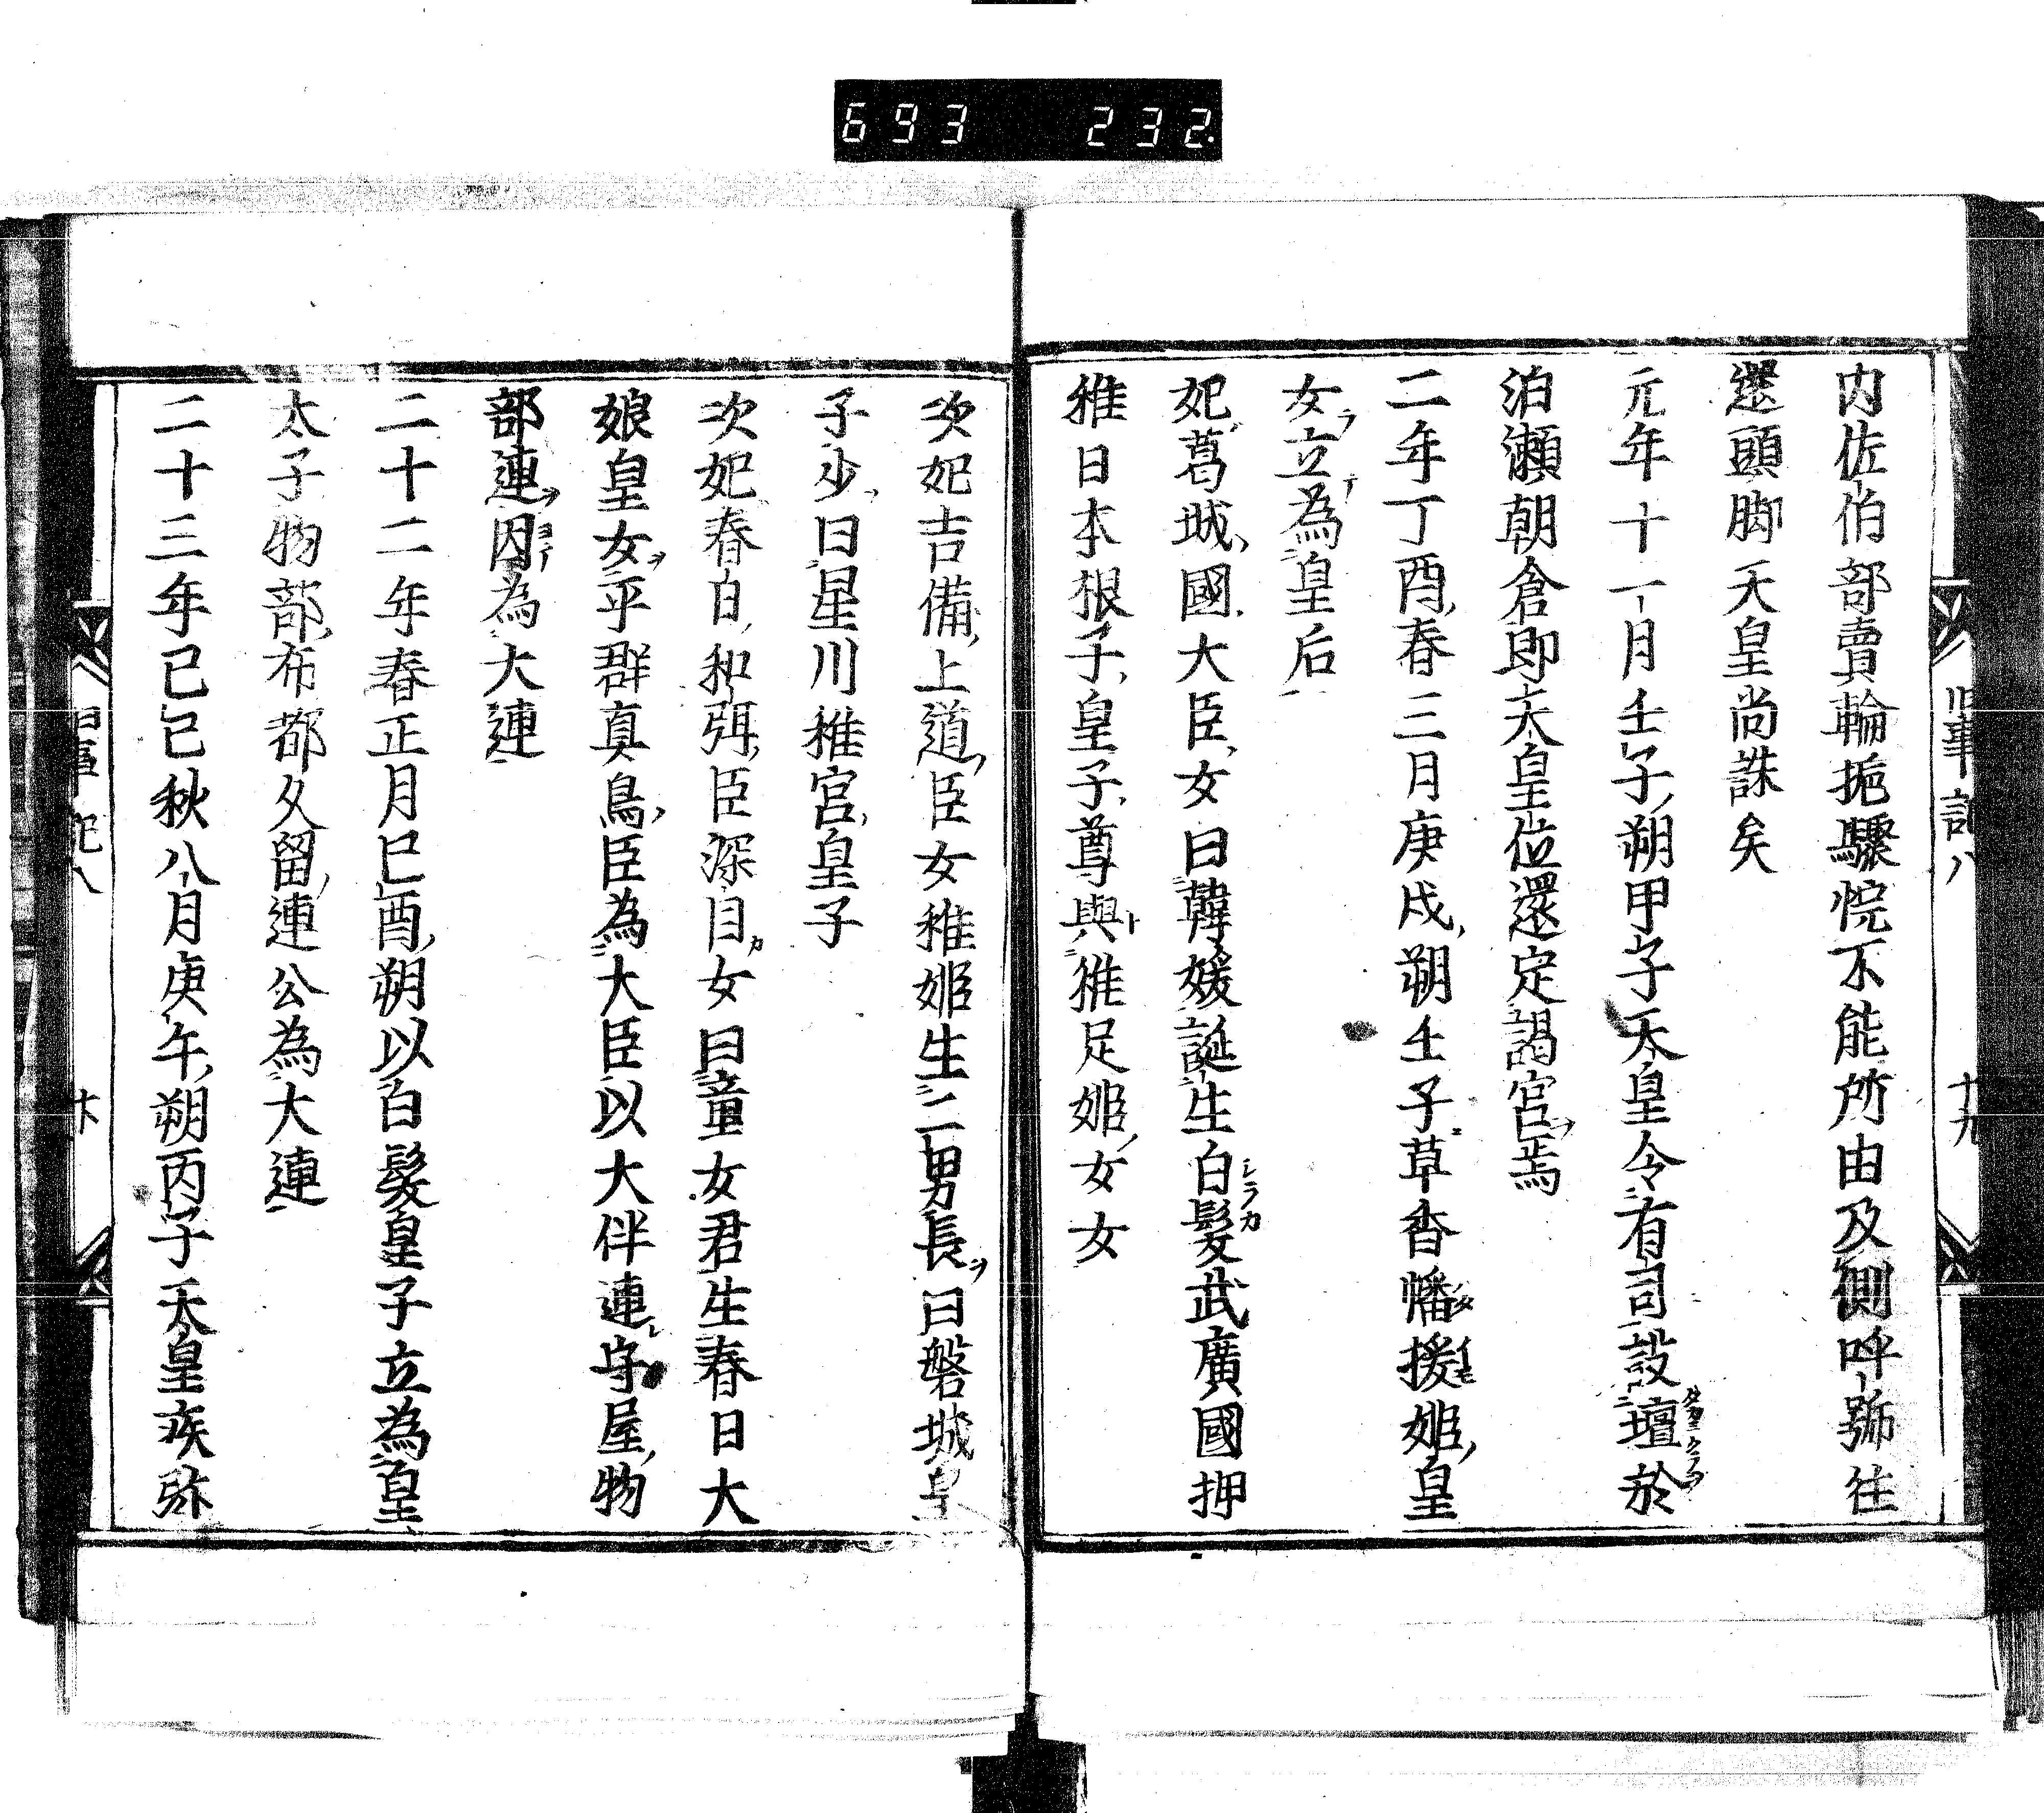 693 232.
内佐伯部賣輪抱驟惋不能所由及側呼號往
還頭脚天皇尚誅矣
元年十一月壬子朔甲子天皇令有司設壇於
泊瀬朝倉即天皇位還定謁宮焉
二年丁酉春三月庚戌朔壬子草香幡援姫皇
女立為皇后
妃葛城國大臣女曰韓媛誕生白髮武廣國押
稚日本根子皇子尊與稚足姫女女
旧事記八 十九
次妃吉備上道臣女稚姫生二男長曰磐城皇
子少曰星川稚宮皇子
次妃春日和弭臣深目女曰童女君生春日大
娘皇女平群真鳥臣為大臣以大伴連守屋物
部連因為大連
二十二年春正月巳酉朔以白髮皇子立為皇
太子物部布都久留連公為大連
二十三年己巳秋八月庚午朔丙子天皇疾弥
旧事紀八